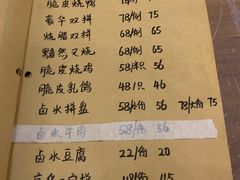 脆皮烧鸭
豪华双拼 78/例 75
烧腊双拼 68/例 65
黯然叉烧 68/例 65
脆皮烧鸡 58/半只 56
脆皮乳鸽 48/只 46
卤水拼盘 58/例 56 78/大份 75
卤水牛肉 58/份 56
卤水豆腐 22/份 20
118/份 115